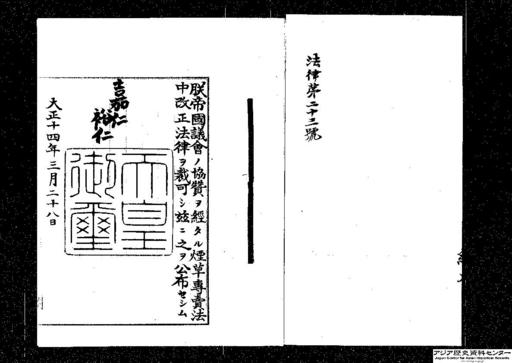 法律第二十三號
朕帝國議會ノ協贊ヲ經タル煙草專賣法
中改正法律ヲ裁可シ玆ニ之ヲ公布セシム
嘉仁
裕仁
天皇
御璽
大正十四年三月二十八日
アジア歴史資料センター
Japan Center for Asian Historical Records